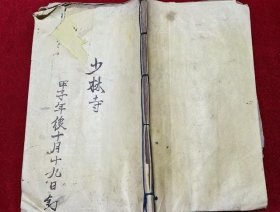 少林寺
甲子年後十月十九日訂